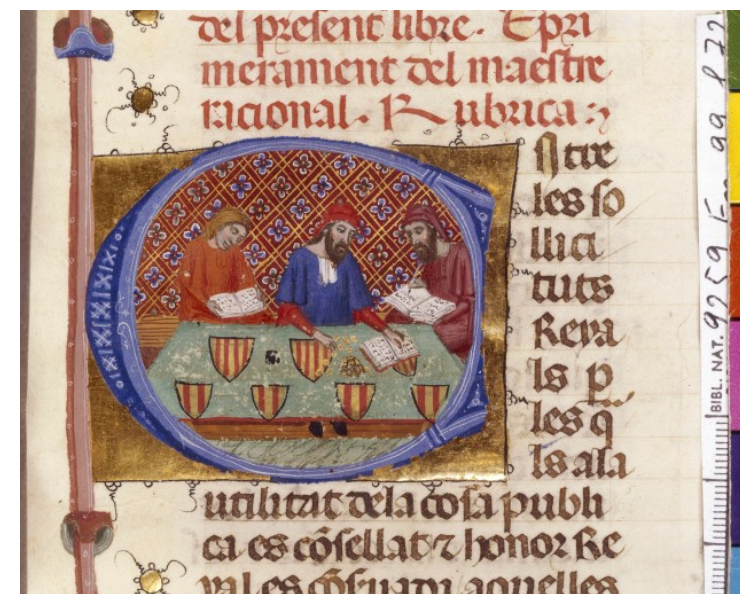 del present libre. E pri
merament del maestre
racional. Rubrica:~
Ntre
les so
llici
tuts
Reya
ls p
les q̄
ls a la
utilitat dela cosa publi
ca es cōsellat ⁊ honor Re
yal es cōseruada aquelles
BIBL. NAT. 99